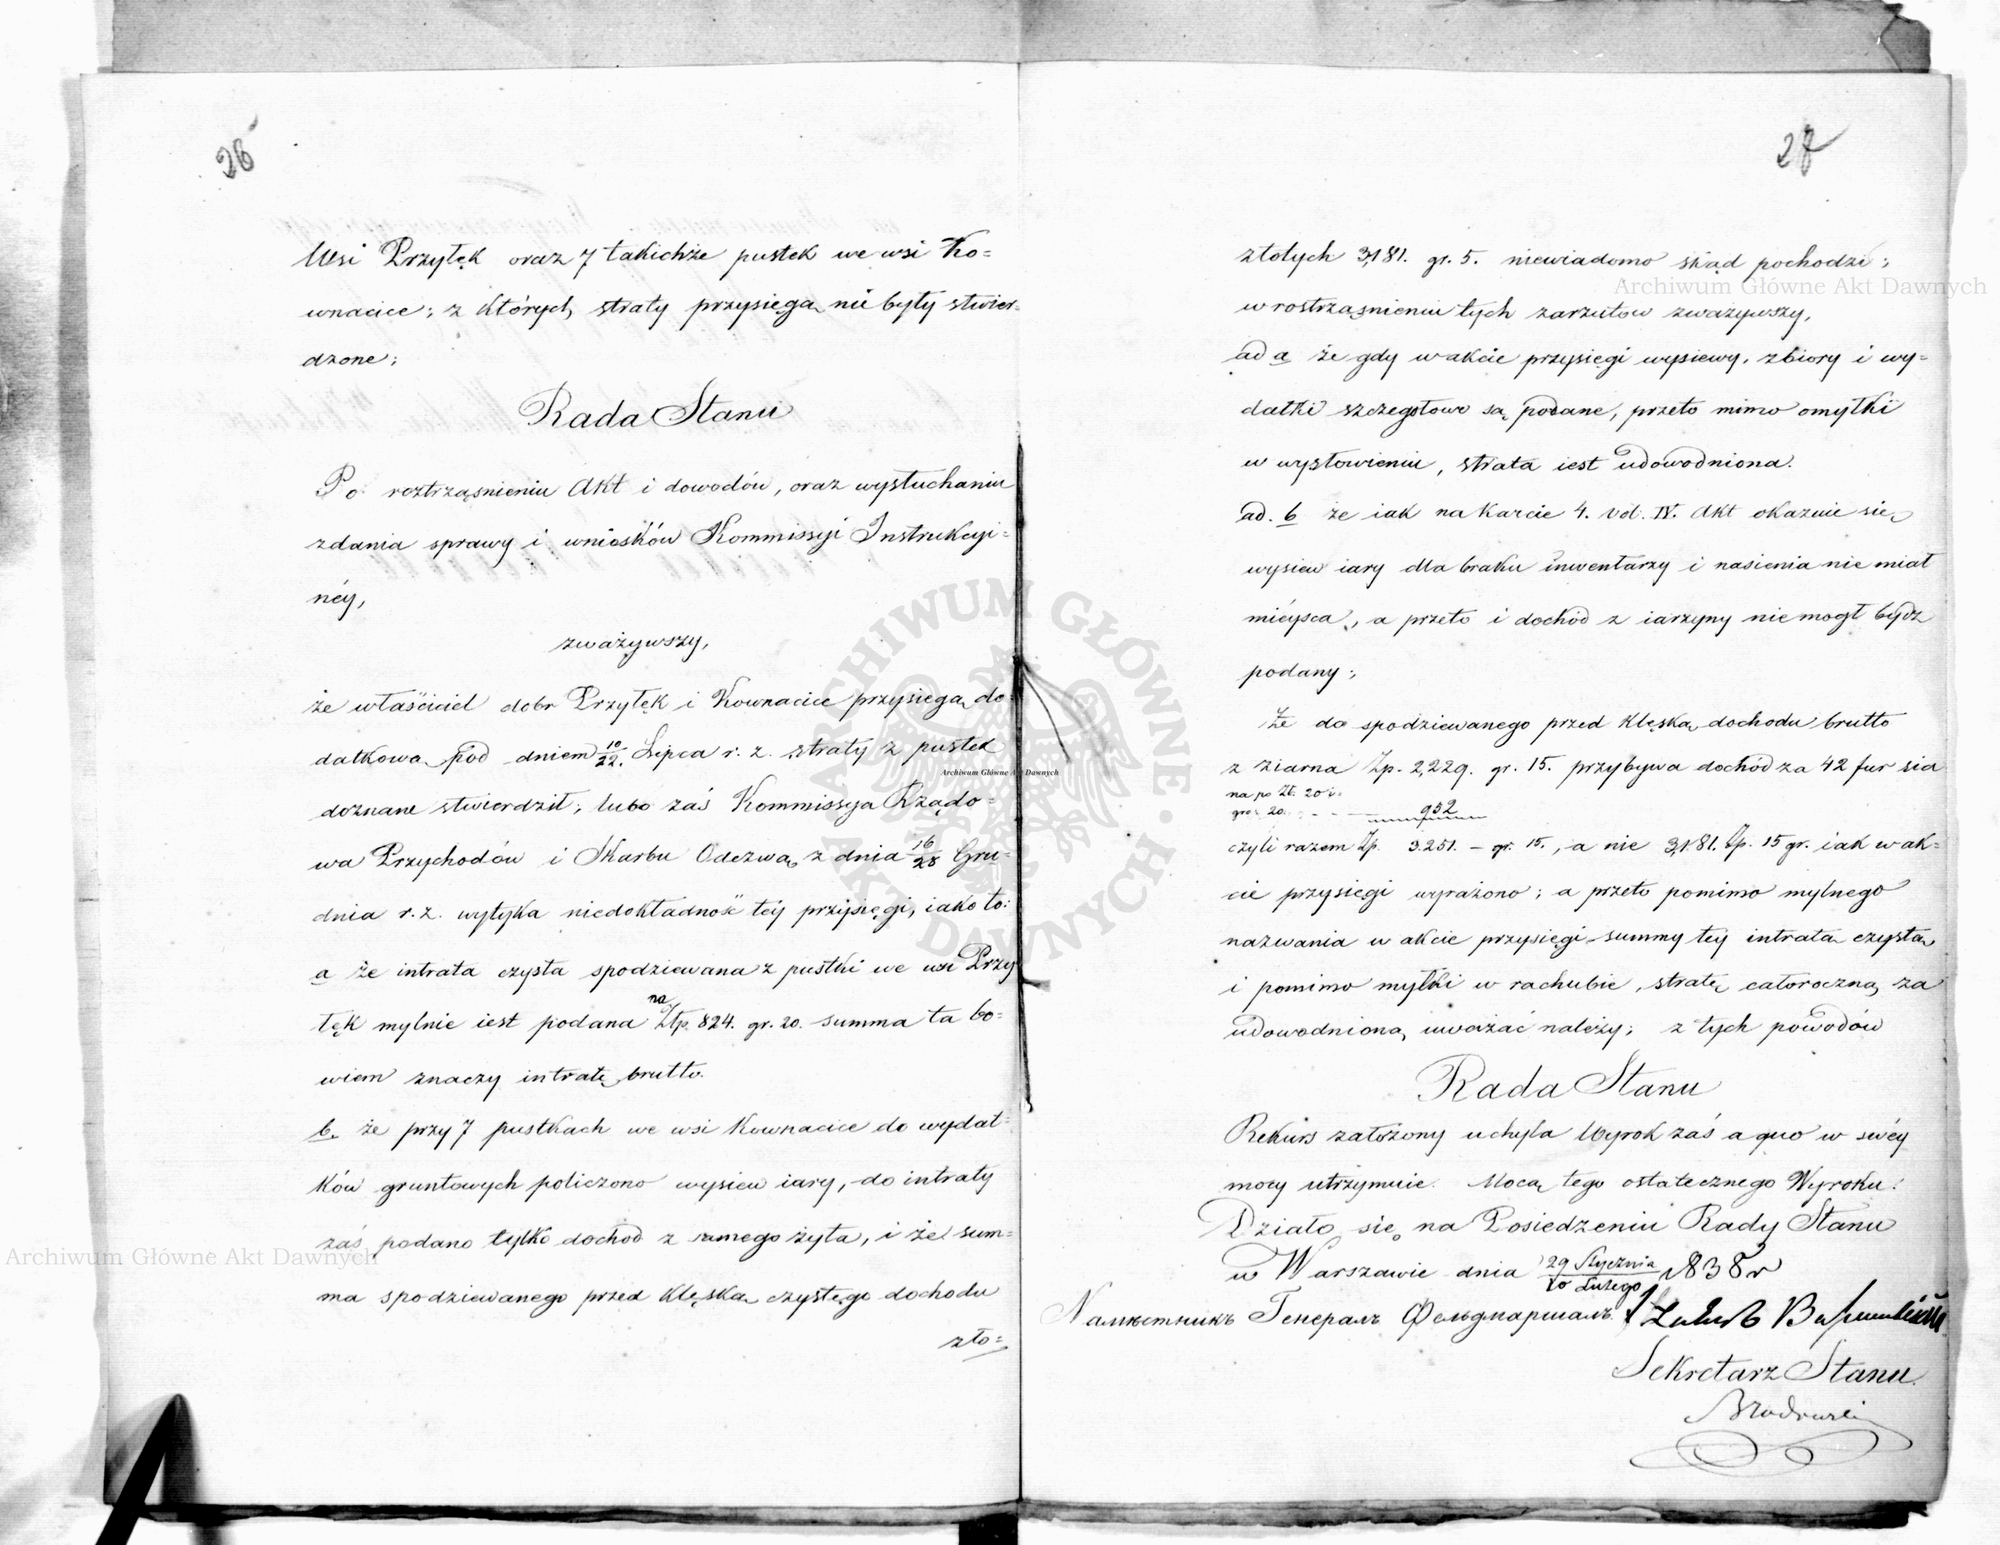 26
Wsi Przyłęk oraz 7 takichże pustek we wsi Ko=
wnacice; z których straty przysięgą nie były stwier=
dzone;
Rada Stanu
Po roztrząśnieniu Akt i dowodów, oraz wysłuchaniu
zdania sprawy i wniosków Kommissyi Instrukcyi=
néy,
zważywszy,
że właściciel dobr Przyłęk i Kownacice przysięgą do=
datkową pod dniem 10/22. Lipca r. z. straty z pustek
doznane stwierdził; lubo zaś Kommissya Rządo=
wa Przychodów i Skarbu Odezwą z dnia 16/28 Gru=
dnia r. z. wytyka niedokładność téy przysięgi, iako to:
a że intrata czysta spodziewana z pustki we wsi Przy
łęk mylnie iest podana na Złp. 824. gr. 20. summa ta bo=
wiem znaczy intratę brutto.
b. że przy 7 pustkach we wsi Kownacice do wydat=
ków gruntowych policzono wysiew iary, do intraty
zaś podano tylko dochód z samego żyta, i że sum=
ma spodziewanego przed klęską czystego dochodu
zło=
27
złotych 3,181. gr. 5. niewiadomo skąd pochodzi;
w rostrząśnieniu tych zarzutow zważywszy,
ad a że gdy w akcie przysięgi wysiewy, zbiory i wy=
datki szczegołowo są podane, przeto mimo omyłki
w wysłowieniu, strata iest udowodniona.
ad. b że iak na karcie 4. vol. IV. Akt okazuie się
wysiew iary dla braku inwentarzy i nasienia nie miał
mieysca, a przeto i dochód z iarzyny nie mogł bydź
podany;
Że do spodziewanego przed klęską dochodu brutto
z ziarna Zp. 2,229. gr. 15. przybywa dochód za 42 fur sia
na po Zł. 20 i
gro: 20. - - - 952
czyli razem Zp. 3.251. – gr. 15., a nie 3,181. Zp. 15 gr. iak w ak=
cie przysięgi wyrażono; a przeto pomimo mylnego
nazwania w akcie przysięgi summy téy intratą czystą
i pomimo myłki w rachubie, stratę całoroczną za
udowodnioną uważać należy; z tych powodów
Rada Stanu
Rekurs założony uchyla Wyrok zaś a quo w swéy
mocy utrzymuie. Mocą tego ostatecznego Wyroku.
Działo się na Posiedzeniu Rady Stanu
w Warszawie dnia 29 Stycznia/10 Lutego 1838 r
Намѣстникъ Генералъ Фельдмаршалъ
Sekretarz Stanu
Archiwum Główne Akt Dawnych
Archiwum Główne Akt Dawnych
Archiwum Główne Akt Dawnych
ARCHIWUM GŁÓWNE · AKT DAWNYCH ·